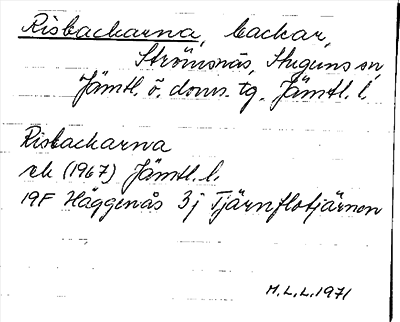 Risbackarna, backar,
Strömsnäs, Stuguns sn,
Jämtl. ö. doms. tg. Jämtl. l.
Risbackarna
rk (1967) Jämtl. l.
19F Häggenås 3j Tjärnflotjärnen
M.L.L. 1971